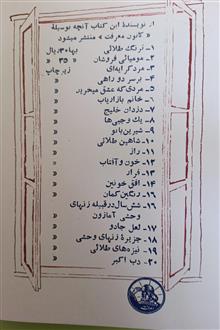 از نویسندهٔ این کتاب آنچه بوسیلهٔ
«کانون معرفت» منتشر میشود
۱- ترنگ طلائی بها ۳۰ ریال
۲- مومیائی فروشان » ۳۵ »
۳- مرد کرایه‌ای زیر چاپ
۴- بر سر دو راهی »
۵- مردی که عشق میخرید »
۶- خانم بازاریاب
۷- دزدان خلیج
۸- یک وجبی‌ها
۹- شیرین بانو
۱۰- شاهین طلائی
۱۱- راز
۱۲- خون و آفتاب
۱۳- فرار
۱۴- افق خونین
۱۵- رنگین کمان
۱۶- شش سال در قبیله زنهای
وحشی آمازون
۱۷- لعل جادو
۱۸- جزیرهٔ زنهای وحشی
۱۹- نیزه‌های طلائی
۲۰- دب اکبر